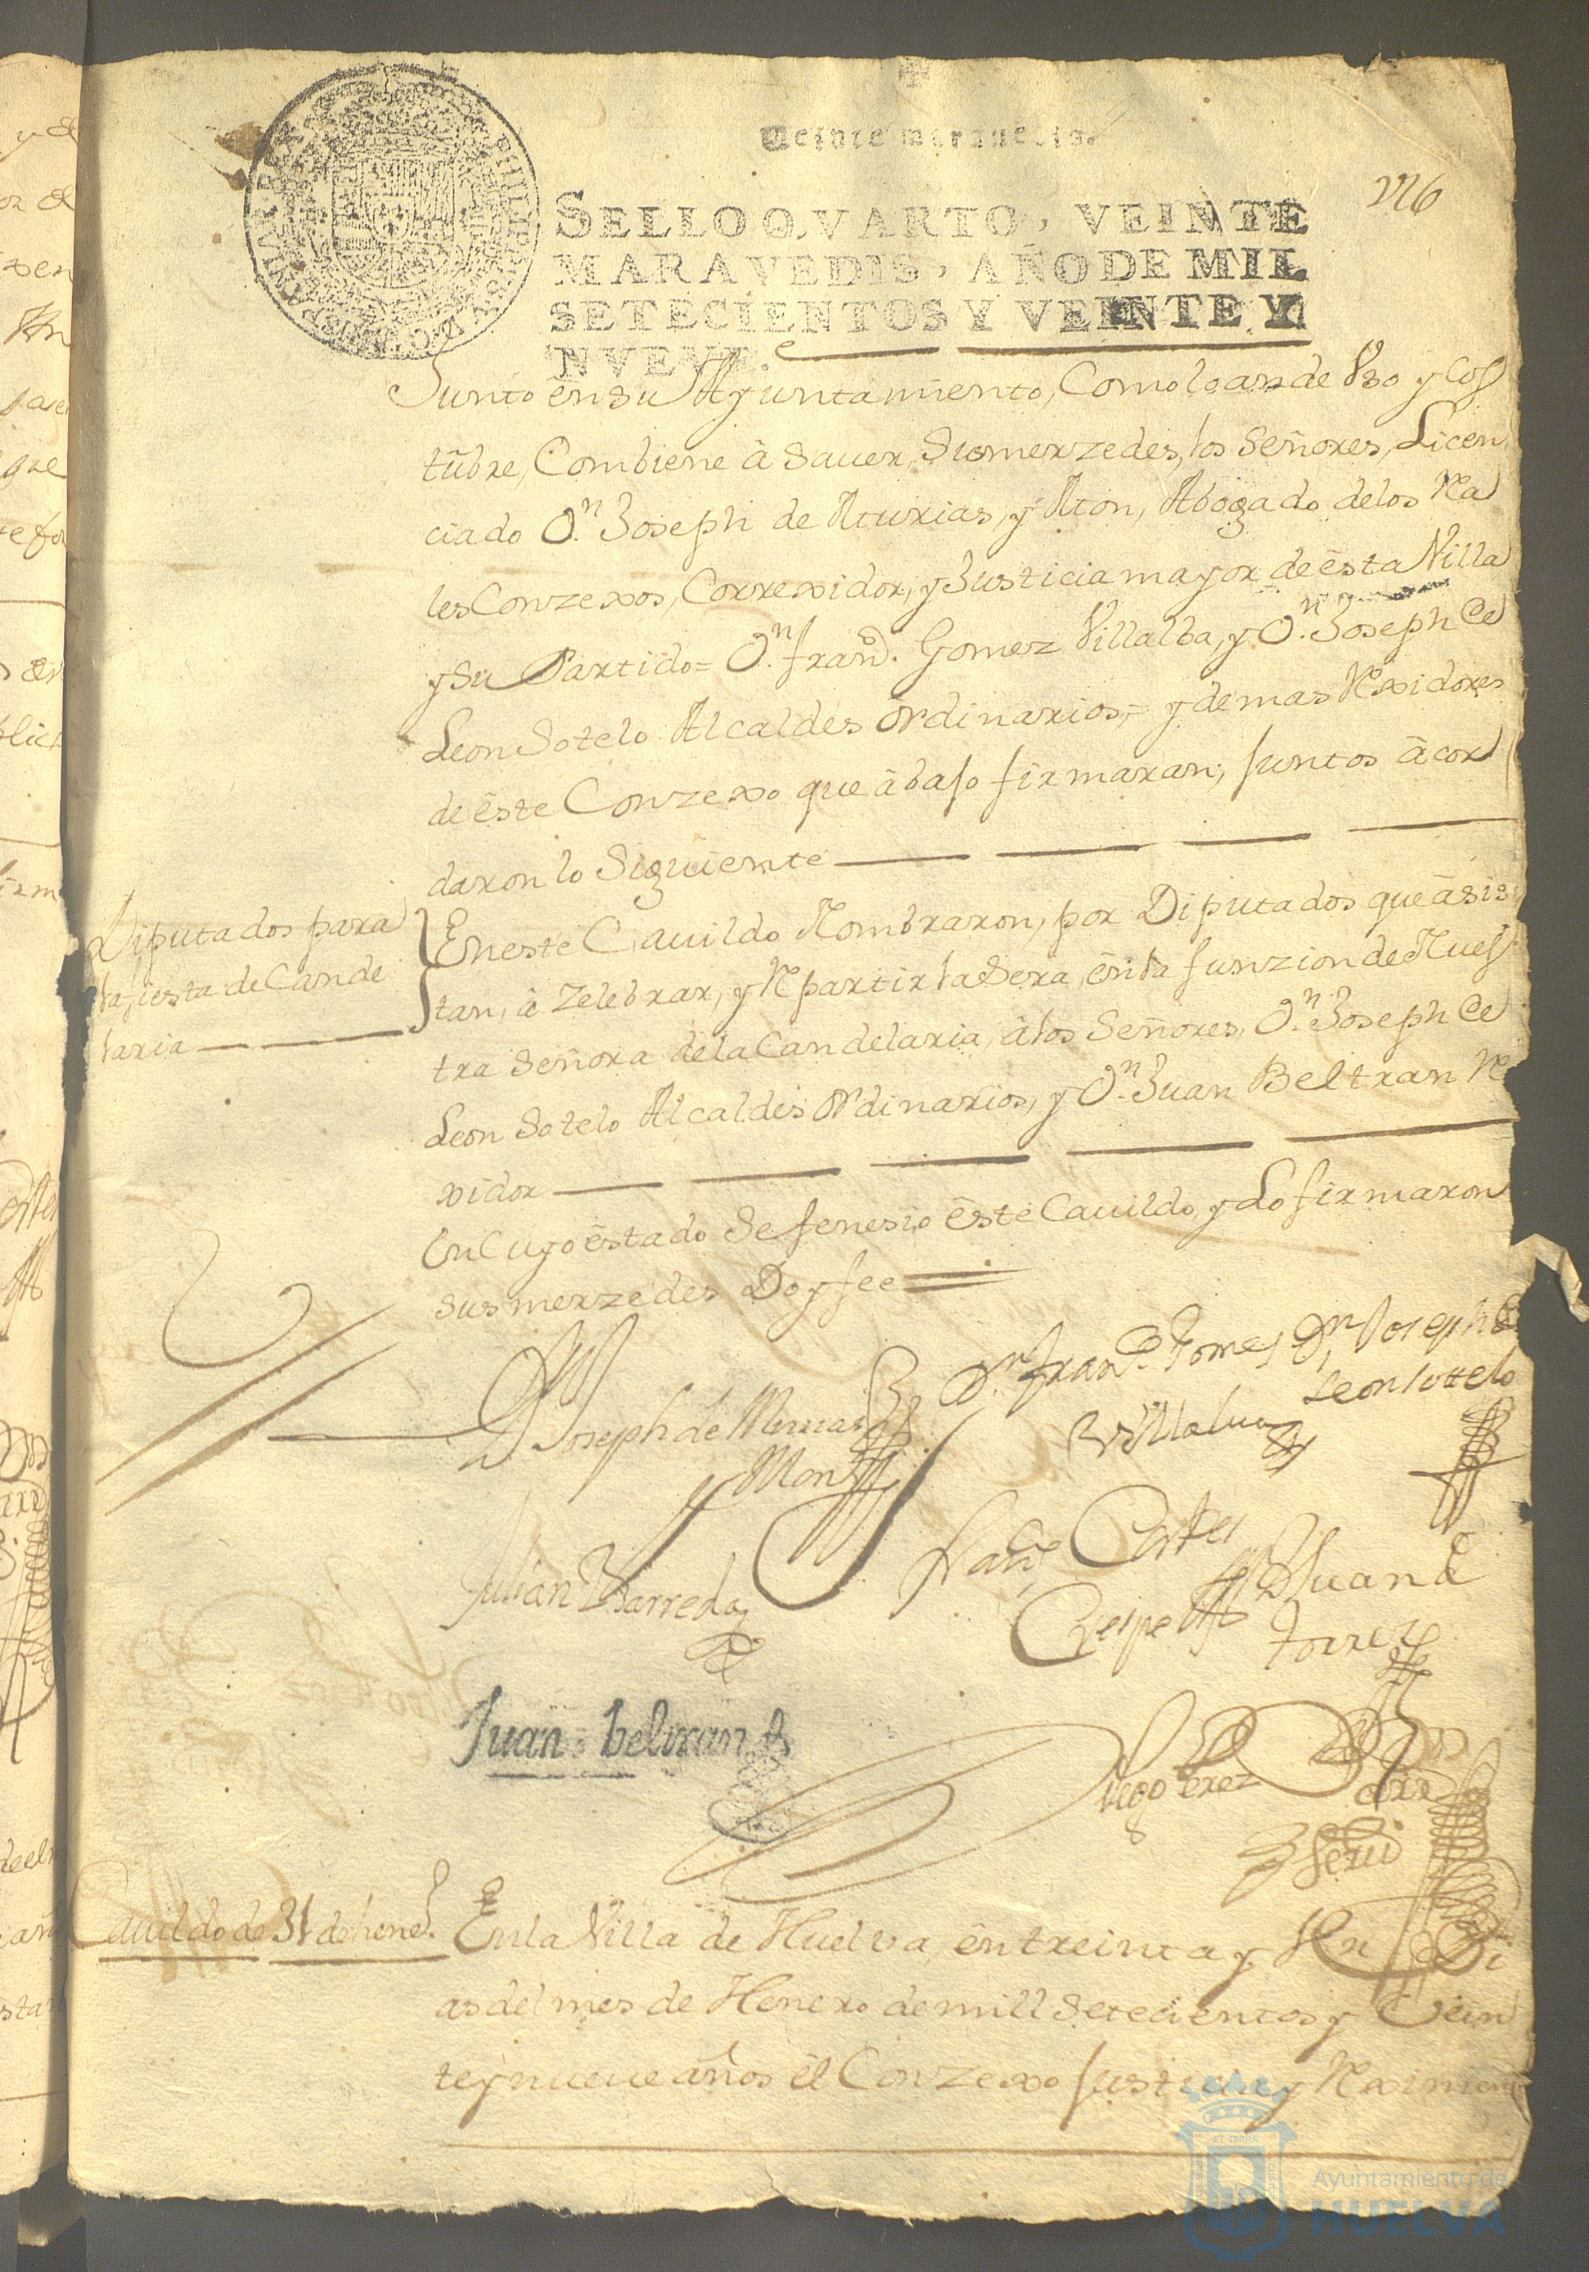 Veinte maravedis.
SELLO QVARTO, VEINTE
MARAVEDIS, AÑO DE MIL
SETECIENTOS Y VEINTE Y
NVEVE.
Junto en su Ayuntamiento, Como lo an de Vso y Cos
tũbre, Combiene â Sauer, Susmerzedes, los Señores, Licen
ciado Dn. Joseph de Aturias, y Mon, Abogado delos Rea
les Conzexos, Correxidor, y Justicia mayor de ésta Villa
y Su Partido= Dn. Franco. Gomez Villalba, y Dn. Joseph de
Leon Sotelo Alcaldes ordinarios,= y demas Rexidores
de éste Conzexo que âbajo firmaran, Juntos âcor
daron lo Siguiente
Diputados para
la fiesta de Cande
laria
En este Cauildo Nombraron, por Diputados que âsis
tan, â Zelebrar, y Repartir la Sera, én la funzion de Nues
tra Señora dela Candelaria, â los Señores, Dn. Joseph de
Leon Sotelo Alcaldes Ordinarios, y Dn. Juan Beltran Re
xidor
En Cuyo éstado Se fenesio éste Cauildo, y Lo firmaron
Sus merzedes Doy fee
Joseph de
Mon
Dn. Franco. Gomes
Villalua
Dn. Joseph de
Leon Sotelo
Julian Barreda
Franco Cortes
Crespo
Juan de
Torres
Juan beltran
Diego Perez
Cauildo de 31 de henero.
En la Villa de Huelva, én treinta y Vn Di
as del mes de Henero de mill Setecientos y Vein
te y nueue años él Conzexo Justicia y Reximien
Ayuntamiento de
HUELVA